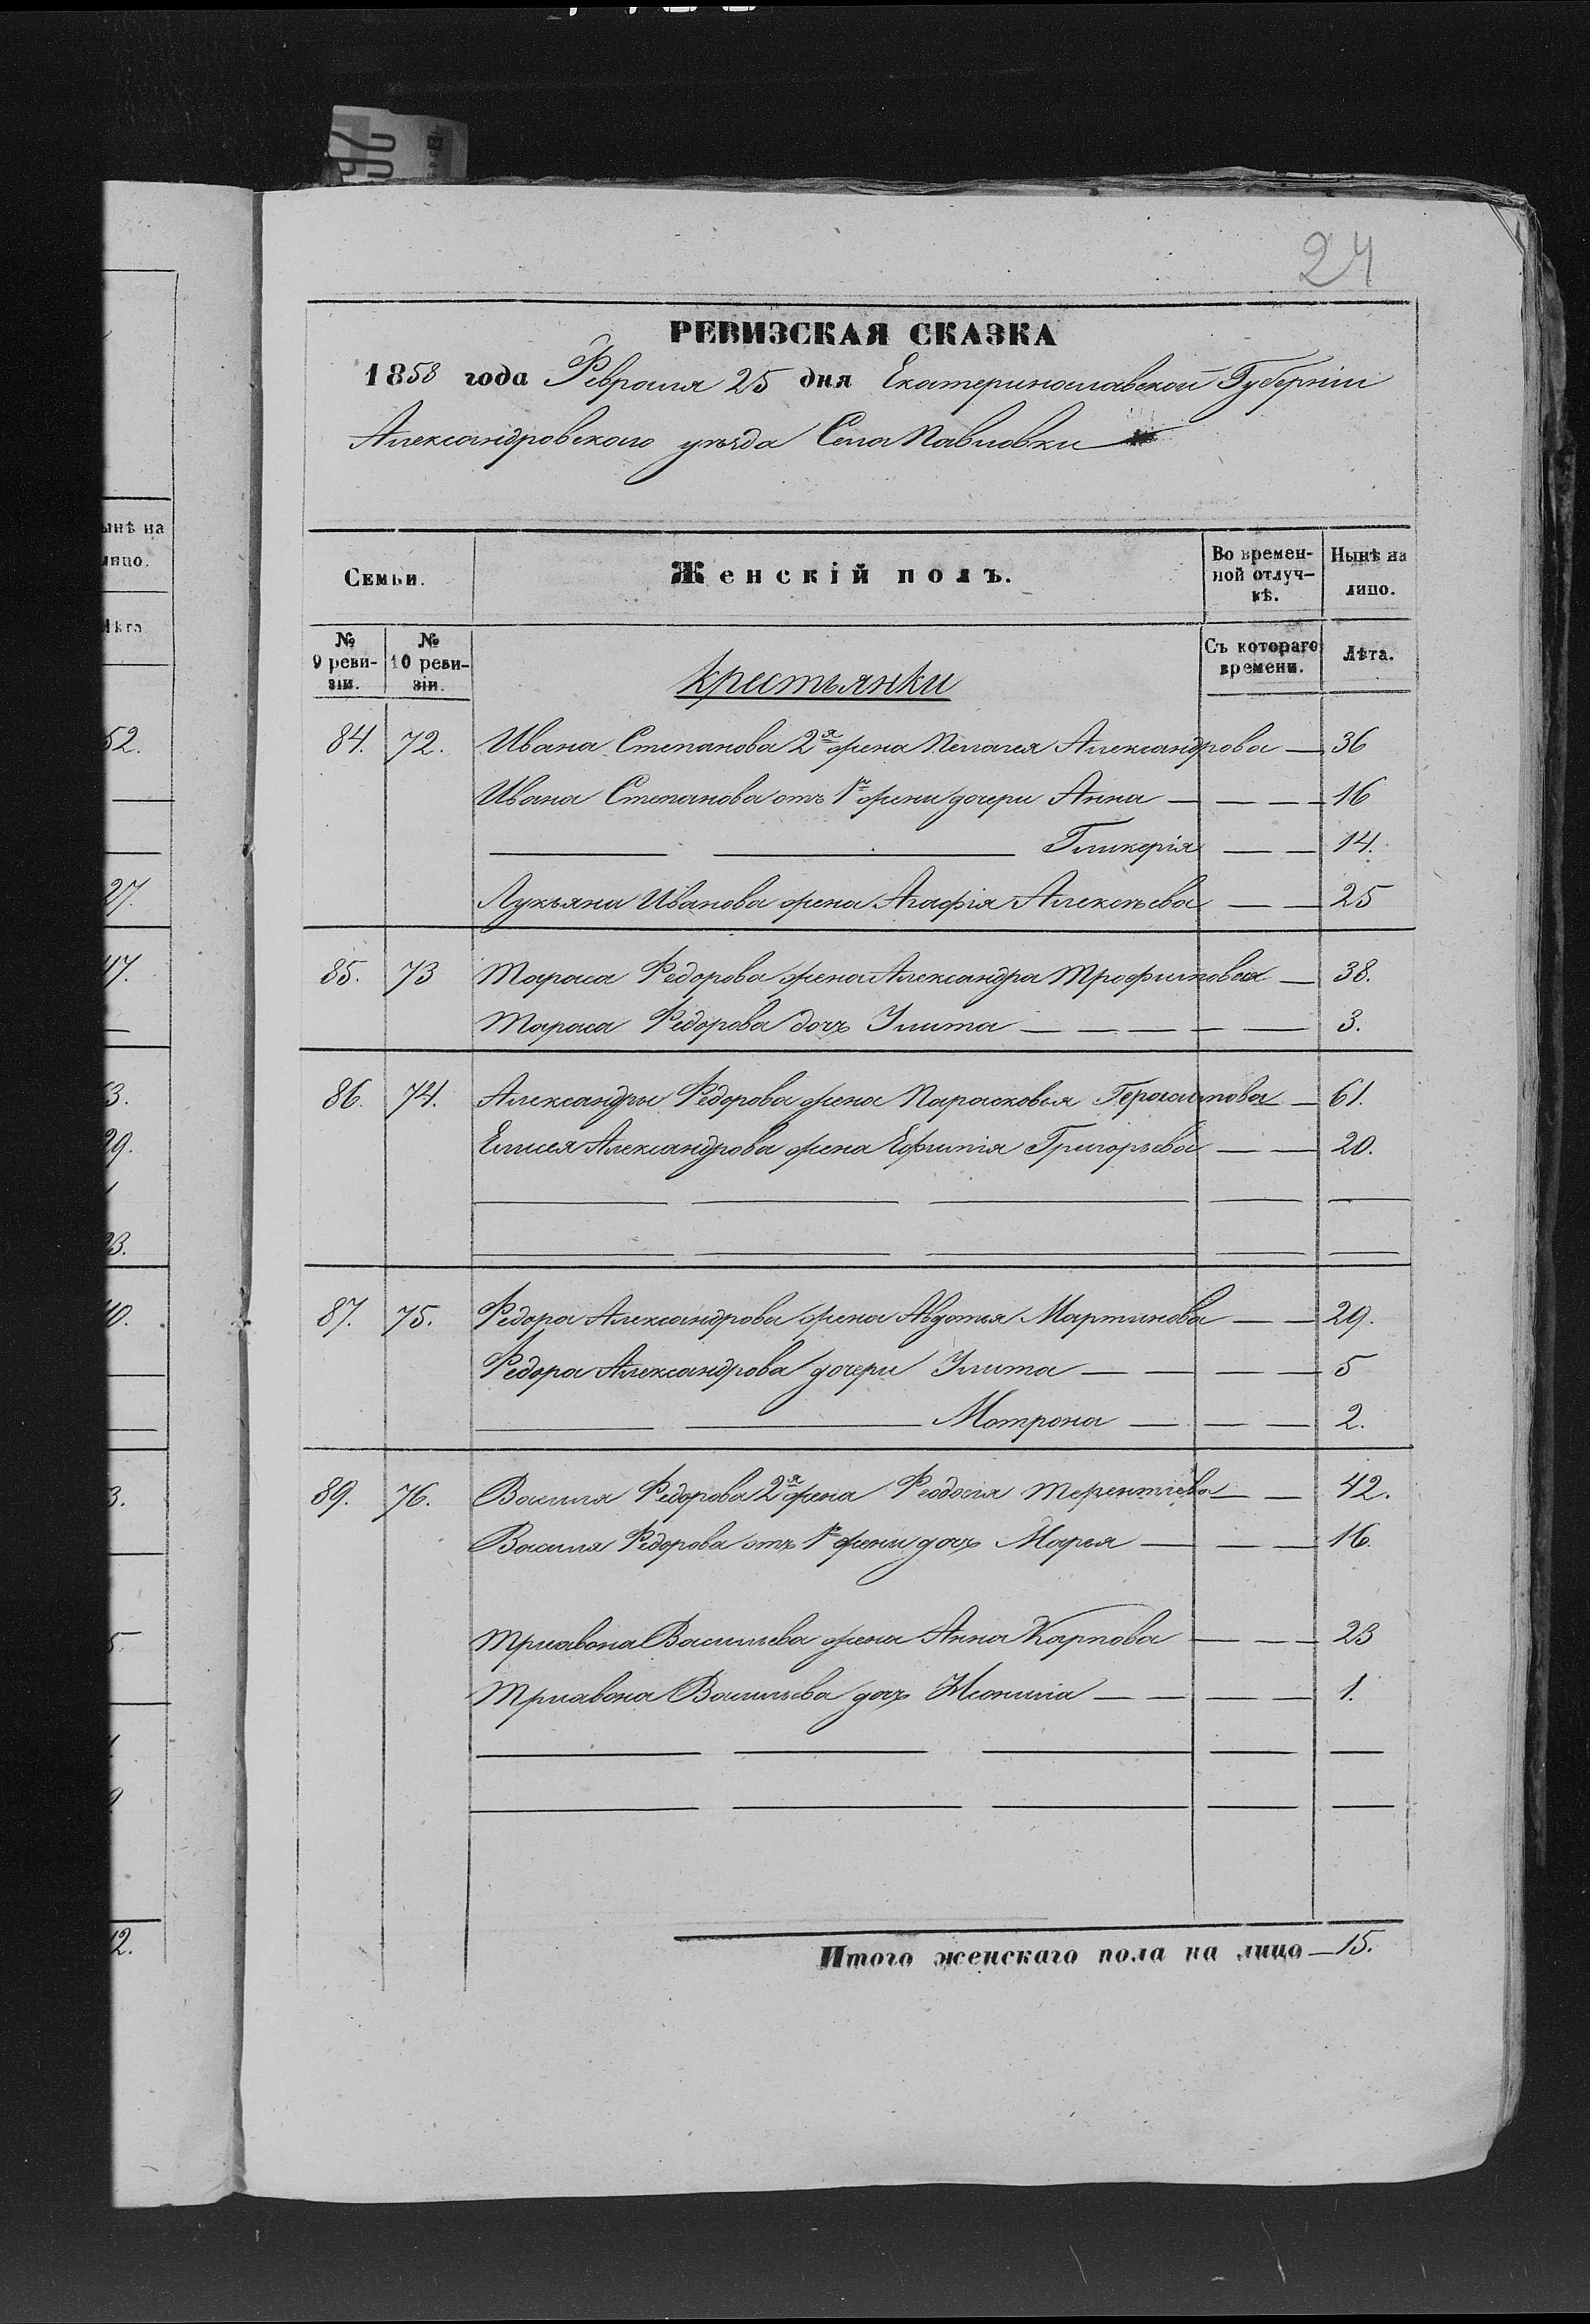 24
РЕВИЗСКАЯ СКАЗКА
1858 года Февраля 25 дня Екатеринославской Губерніи
Александровскаго уѣзда Села Павловки
Семьи. Женскій полъ. Во времен-ной отлуч-кѣ. Нынѣ на лицо.
№ 9 реви-зіи. № 10 реви-зіи. Крестьянки Съ котораго времени. Лѣта.
84. 72. Ивана Степанова 2я жена Пелагея Александрова — 36
Ивана Степанова отъ 1й жени дочери Анна — — — — 16
Гликерія — — 14.
Лукьяна Иванова жена Агафія Алексѣева — — 25
85. 73 Тараса Федорова жена Александра Трофимовая — 38.
Тараса Федорова дочь Улита — — — — — 3.
86. 74. Александры Федорова жена Парасковья Герасимова — 61.
Елисея Александрова жена Ефимія Григорьева — — 20.
87. 75. Федора Александрова жена Авдотья Мартинова — — 29.
Федора Александрова дочери Улита — — — — 5
Мотрона — — — 2.
89. 76. Василя Федорова 2я жена Феодосія Терентіева — — 42.
Василя Федорова отъ 1й жени дочь Марья — — — 16.
Василева жена Анна Карпова — — — 23
Васильева дочь — — — — 1.
Итого женскаго пола на лицо — 15.
ынѣ на
лицо.
Лѣта
52.
27.
47.
3.
29.
23.
40.
3.
5
2.